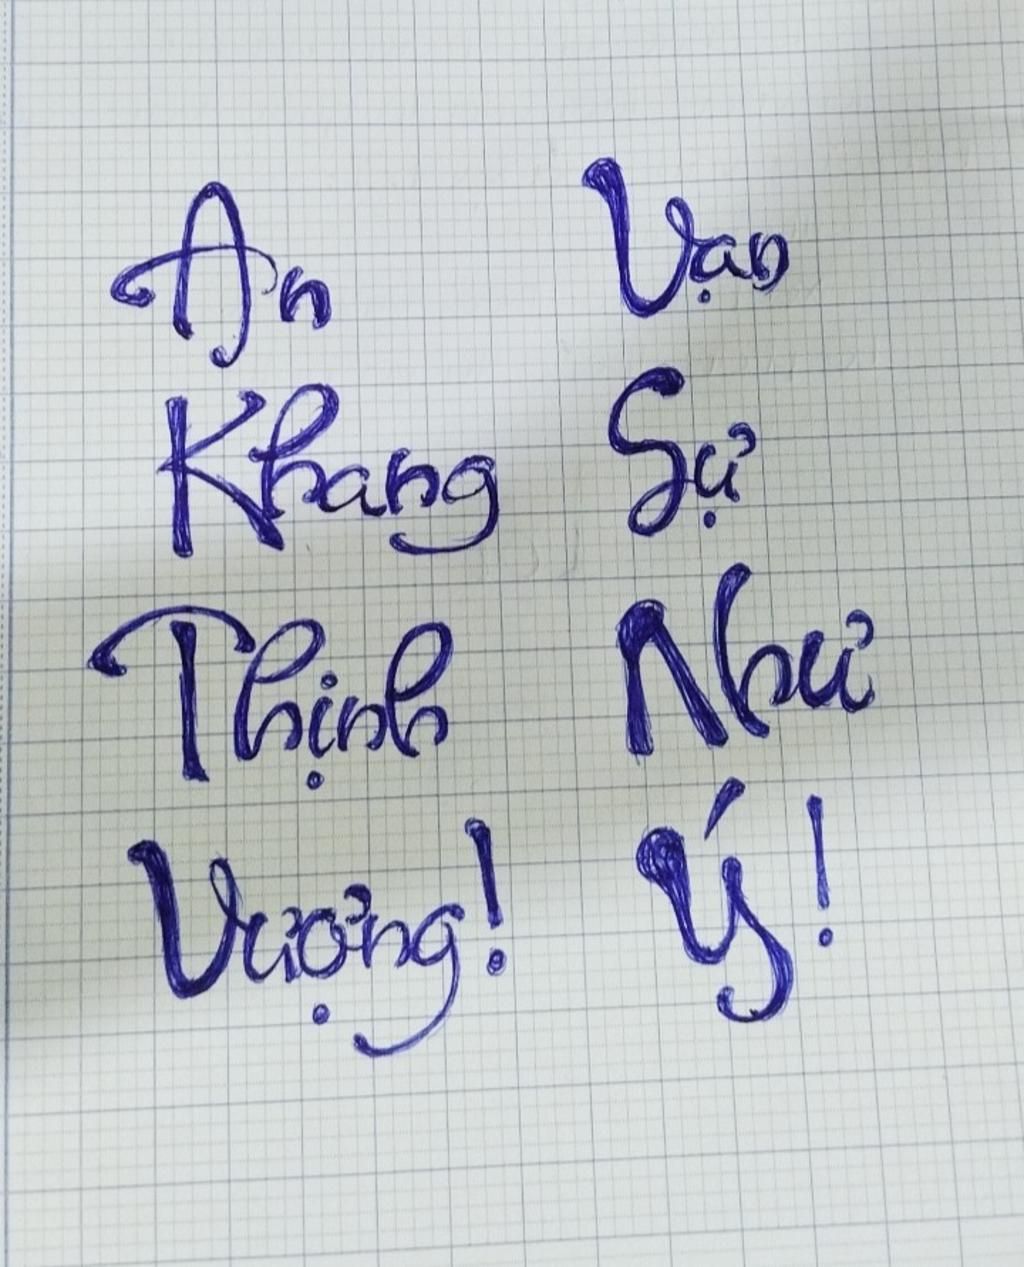 An
Khang
Thịnh
Vượng!
Vạn
Sự
Như
Ý!